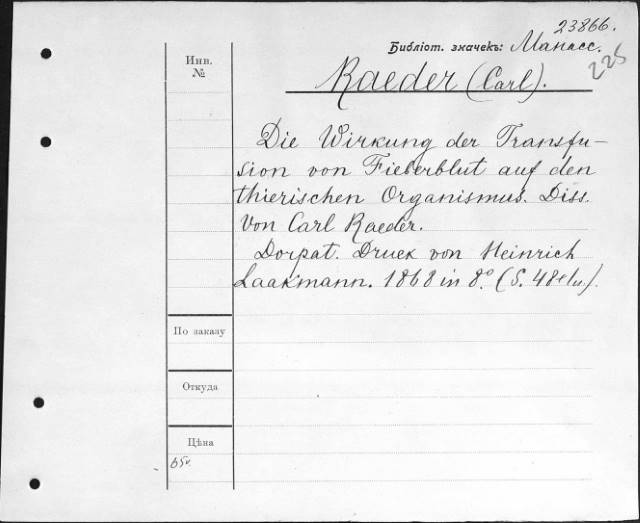 23866.
Библіот. значекъ: Манасс.
225
Инв.
№
Raeder (Carl).
Die Wirkung der Transfu-
sion von Fieberblut auf den
thierischen Organismus. Diss.
Von Carl Raeder.
Dorpat. Druck von Heinrich
Laakmann. 1868 in 8° (S. 48
По заказу
Откуда
Цѣна